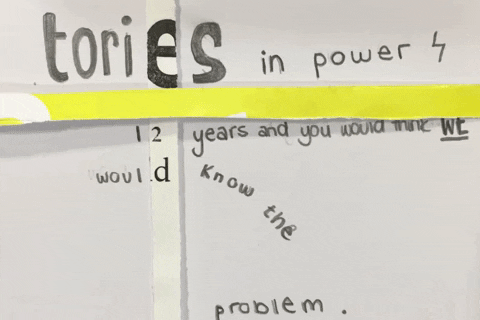 tories in power ϟ
12 years and you would think WE
would know the
problem.